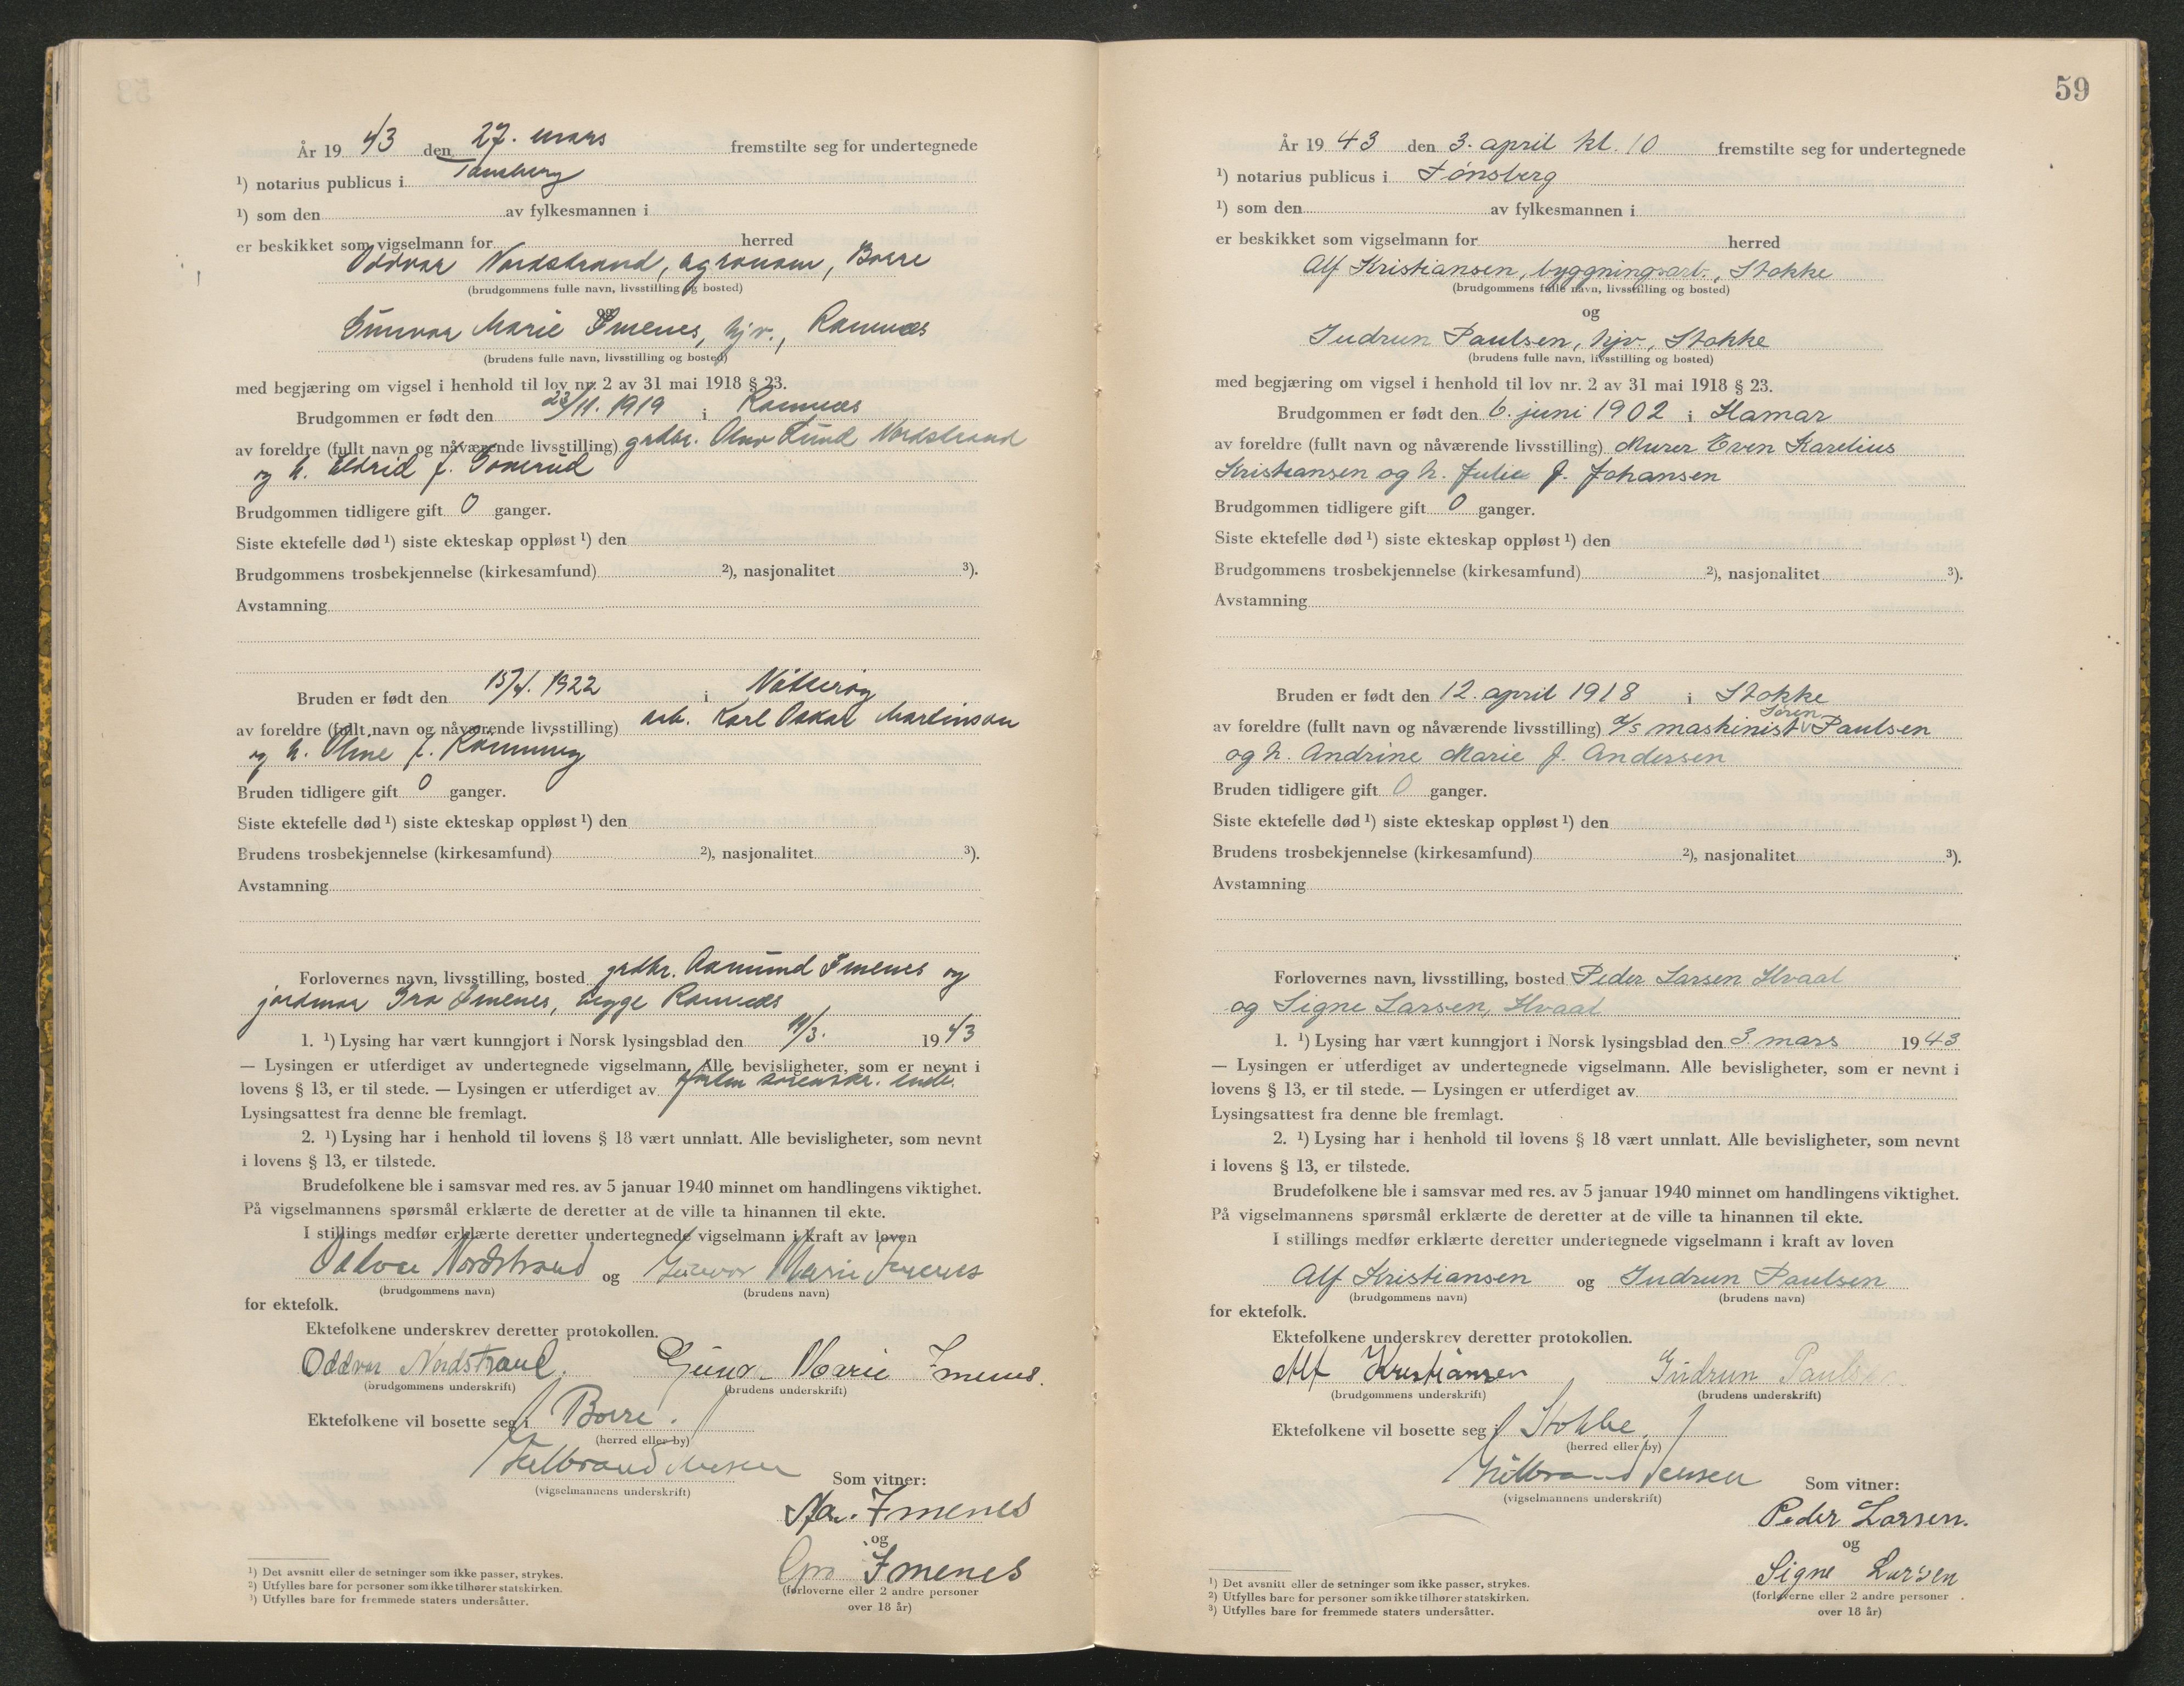 År 19 43 den 27. mars fremstilte seg for undertegnede
¹) notarius publicus i Tønsberg
¹) som den av fylkesmannen i
er beskikket som vigselmann for herred
Oddvar Nordstrand, agronom, Borre
(brudgommens fulle navn, livsstilling og bosted)
og
Gunvor Marie Imenes, hjv., Ramnæs
(brudens fulle navn, livsstilling og bosted)
med begjæring om vigsel i henhold til lov nr. 2 av 31 mai 1918 § 23.
Brudgommen er født den 23/11. 1919 i Ramnæs
av foreldre (fullt navn og nåværende livsstilling) grdbr. Lund Nordstrand
og h. Eldrid f.
Brudgommen tidligere gift 0 ganger.
Siste ektefelle død ¹) siste ekteskap oppløst ¹) den
Brudgommens trosbekjennelse (kirkesamfund) ²), nasjonalitet ³).
Avstamning
Bruden er født den 1922 i Nøtterøy
av foreldre (fullt navn og nåværende livsstilling) arb. Karl Oskar Martinson
og h. Oline f.
Bruden tidligere gift 0 ganger.
Siste ektefelle død ¹) siste ekteskap oppløst ¹) den
Brudens trosbekjennelse (kirkesamfund) ²), nasjonalitet ³).
Avstamning
Forlovernes navn, livsstilling, bosted grdbr. Aamund Imenes og
jordmor Gro Imenes, begge Ramnæs
1. ¹) Lysing har vært kunngjort i Norsk lysingsblad den 11/3. 19 43
— Lysingen er utferdiget av undertegnede vigselmann. Alle bevisligheter, som er nevnt i
lovens § 13, er til stede. — Lysingen er utferdiget av sorenskr.
Lysingsattest fra denne ble fremlagt.
2. ¹) Lysing har i henhold til lovens § 18 vært unnlatt. Alle bevisligheter, som nevnt
i lovens § 13, er tilstede.
Brudefolkene ble i samsvar med res. av 5 januar 1940 minnet om handlingens viktighet.
På vigselmannens spørsmål erklærte de deretter at de ville ta hinannen til ekte.
I stillings medfør erklærte deretter undertegnede vigselmann i kraft av loven
Oddvar Nordstrand og Gunvor Marie Imenes
(brudgommens navn) (brudens navn)
for ektefolk.
Ektefolkene underskrev deretter protokollen.
Oddvar Nordstrand. Gunvor Marie Imenes.
(brudgommens underskrift) (brudens underskrift)
Ektefolkene vil bosette seg i Borre.
(herred eller by)
(vigselmannens underskrift)
Som vitner:
Imenes
og
Gro Imenes
(forloverne eller 2 andre personer
over 18 år)
¹) Det avsnitt eller de setninger som ikke passer, strykes.
²) Utfylles bare for personer som ikke tilhører statskirken.
³) Utfylles bare for fremmede staters undersåtter.
59
År 19 43 den 3. april kl. 10 fremstilte seg for undertegnede
¹) notarius publicus i Tønsberg
¹) som den av fylkesmannen i
er beskikket som vigselmann for herred
Alf Kristiansen, byggningsarb., Stokke
(brudgommens fulle navn, livsstilling og bosted)
og
Gudrun Paulsen, hjv., Stokke
(brudens fulle navn, livsstilling og bosted)
med begjæring om vigsel i henhold til lov nr. 2 av 31 mai 1918 § 23.
Brudgommen er født den 6. juni 1902 i Hamar
av foreldre (fullt navn og nåværende livsstilling) Murer Even Karelius
Kristiansen og h. Julie f. Johansen
Brudgommen tidligere gift 0 ganger.
Siste ektefelle død ¹) siste ekteskap oppløst ¹) den
Brudgommens trosbekjennelse (kirkesamfund) ²), nasjonalitet ³).
Avstamning
Bruden er født den 12. april 1918 i Stokke
av foreldre (fullt navn og nåværende livsstilling) d/s maskinist Søren Paulsen
og h. Andrine Marie f. Andersen
Bruden tidligere gift 0 ganger.
Siste ektefelle død ¹) siste ekteskap oppløst ¹) den
Brudens trosbekjennelse (kirkesamfund) ²), nasjonalitet ³).
Avstamning
Forlovernes navn, livsstilling, bosted Peder Larsen Hvaal
og Signe Larsen, Hvaal
1. ¹) Lysing har vært kunngjort i Norsk lysingsblad den 3. mars 19 43
— Lysingen er utferdiget av undertegnede vigselmann. Alle bevisligheter, som er nevnt i
lovens § 13, er til stede. — Lysingen er utferdiget av
Lysingsattest fra denne ble fremlagt.
2. ¹) Lysing har i henhold til lovens § 18 vært unnlatt. Alle bevisligheter, som nevnt
i lovens § 13, er tilstede.
Brudefolkene ble i samsvar med res. av 5 januar 1940 minnet om handlingens viktighet.
På vigselmannens spørsmål erklærte de deretter at de ville ta hinannen til ekte.
I stillings medfør erklærte deretter undertegnede vigselmann i kraft av loven
Alf Kristiansen og Gudrun Paulsen
(brudgommens navn) (brudens navn)
for ektefolk.
Ektefolkene underskrev deretter protokollen.
Alf Kristiansen Gudrun Paulsen
(brudgommens underskrift) (brudens underskrift)
Ektefolkene vil bosette seg i Stokke.
(herred eller by)
(vigselmannens underskrift)
Som vitner:
Peder Larsen.
og
Signe Larsen
(forloverne eller 2 andre personer
over 18 år)
¹) Det avsnitt eller de setninger som ikke passer, strykes.
²) Utfylles bare for personer som ikke tilhører statskirken.
³) Utfylles bare for fremmede staters undersåtter.